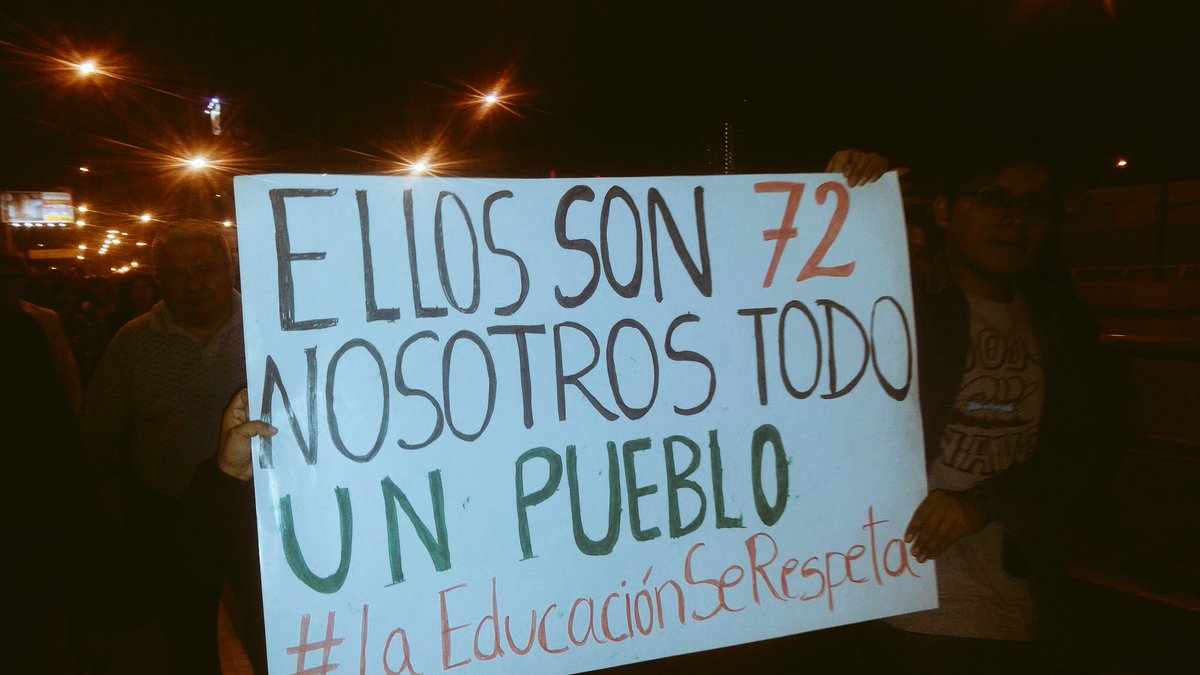 ELLOS SON 72
NOSOTROS TODO
UN PUEBLO
#la EducaciónSeRespeta